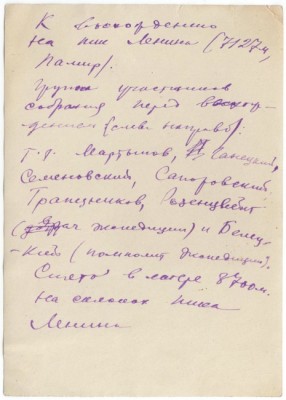 К восхождению
на пик Ленина (7127м,
Памир).
Группа участников
собрания перед восхож-
дением (слева направо):
т.т. Мартынов, Ганецкий,
Семеновский, Сапоровский
Траценников, Розенцвейг
(врач экспедиции) и Белец-
кий (помполит экспедиции).
Снято в лагере 5700м.
на склонах пика
Ленина